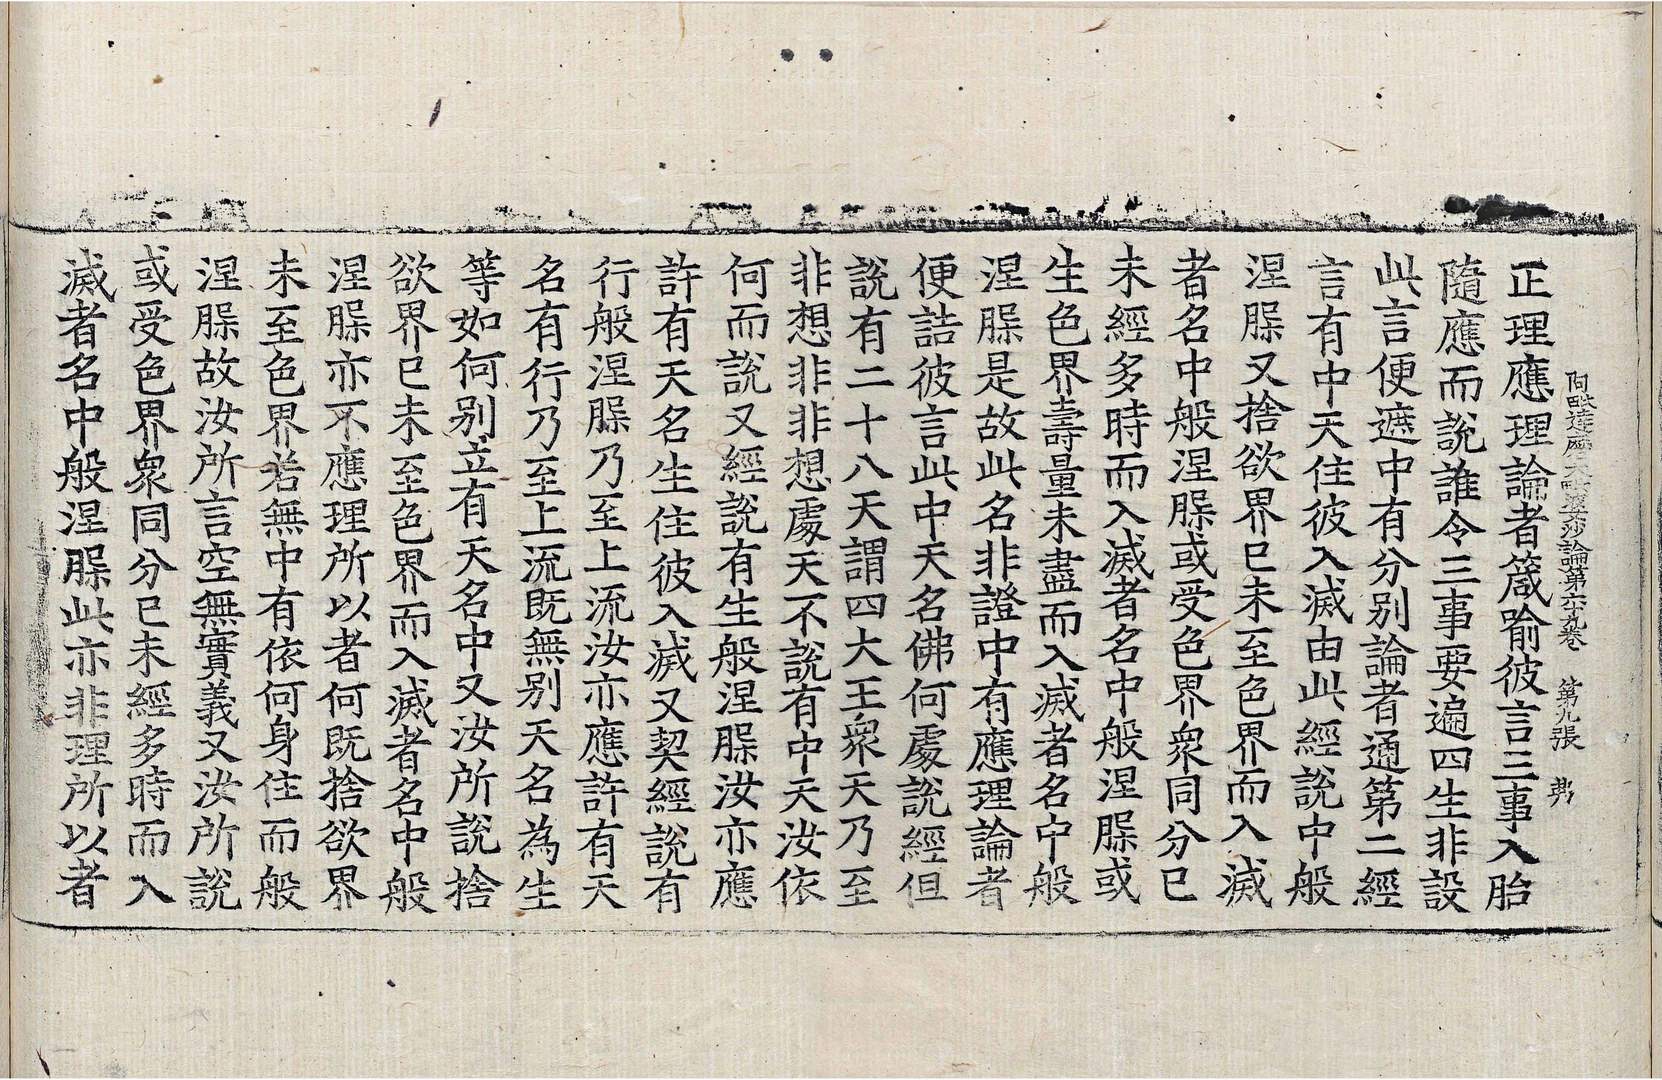 阿毗達磨大毗婆沙論第六十九卷　第九張　弗
正理應理論者箴喻彼言三事入胎
隨應而說誰令三事要遍四生非設
此言便遮中有分別論者通第二經
言有中天住彼入滅由此經說中般
涅槃又捨欲界已未至色界而入滅
者名中般涅槃或受色界衆同分已
未經多時而入滅者名中般涅槃或
生色界壽量未盡而入滅者名中般
涅槃是故此名非證中有應理論者
便詰彼言此中天名佛何處說經但
說有二十八天謂四大王衆天乃至
非想非非想處天不說有中天汝依
何而說又經說有生般涅槃汝亦應
許有天名生住彼入滅又契經說有
行般涅槃乃至上流汝亦應許有天
名有行乃至上流既無別天名為生
等如何別立有天名中又汝所說捨
欲界已未至色界而入滅者名中般
涅槃亦不應理所以者何既捨欲界
未至色界若無中有依何身住而般
涅槃故汝所言空無實義又汝所說
或受色界衆同分已未經多時而入
滅者名中般涅槃此亦非理所以者